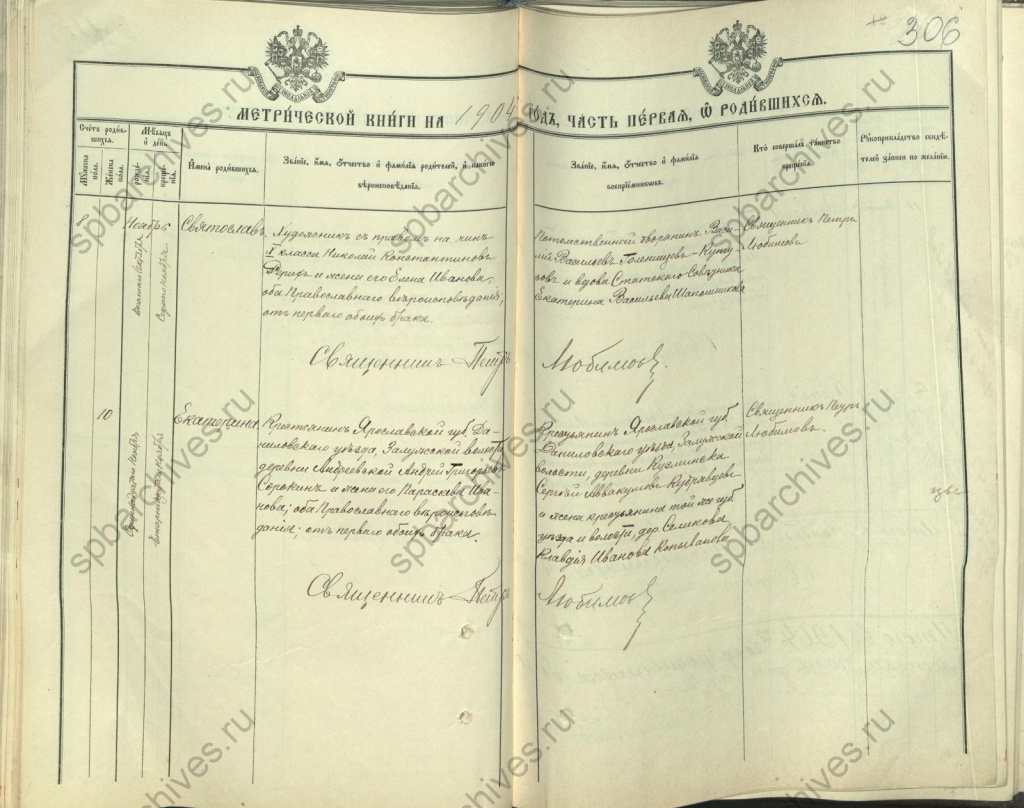 306
МЕТРИ́ЧЕСКОЙ КНИ́ГИ НА 1904 ГО́ДЪ, ЧА́СТЬ ПЕ́РВАЯ, Ѡ РОДИ́ВШИХСЯ.
Счетъ роди́вшихся.
Мѣсяцъ и день.
Мужеска пола.
Женска пола.
рожденія.
крещенія.
Имена родившихся.
Званіе, имя, отчество и фамилія родителей, и какого
вѣроисповѣданія.
Званіе, имя, отчество и фамилія
воспріемниковъ.
Кто совершалъ таинство
крещенія.
Рукоприкладство свидѣ-
телей записи по желанію.
8
Ноябрь
Святославъ
Художникъ съ правомъ на чинъ
X класса Николай Константиновъ
Рерихъ и жена его Елена Иванова,
оба Православнаго вѣроисповѣданія,
отъ перваго обоихъ брака.
Потомственный дворянинъ Васи-
лій Васильевъ Голенищевъ-Куту-
зовъ и вдова Статскаго Совѣтника
Екатерина Васильева Шапошникова
Священникъ Петръ
Любимовъ
Священникъ Петръ Любимовъ
10
Екатерина
Крестьянинъ Ярославской губ. Да-
ниловскаго уѣзда, Залужской волости
деревни Андреевской Андрей Григорьевъ
Сорокинъ и жена его Параскева Ива-
нова; оба Православнаго вѣроисповѣ-
данія; отъ перваго обоихъ брака.
Крестьянинъ Ярославской губ.
Даниловскаго уѣзда, Залужской
волости, деревни Кузминска
Сергѣй Аввакумовъ Кудрявцевъ
и жена крестьянина той же губ.
уѣзда и волости, дер. Селикова
Клавдія Иванова Копыванова
Священникъ Петръ
Любимовъ.
Священникъ Петръ Любимовъ
spbarchives.ru